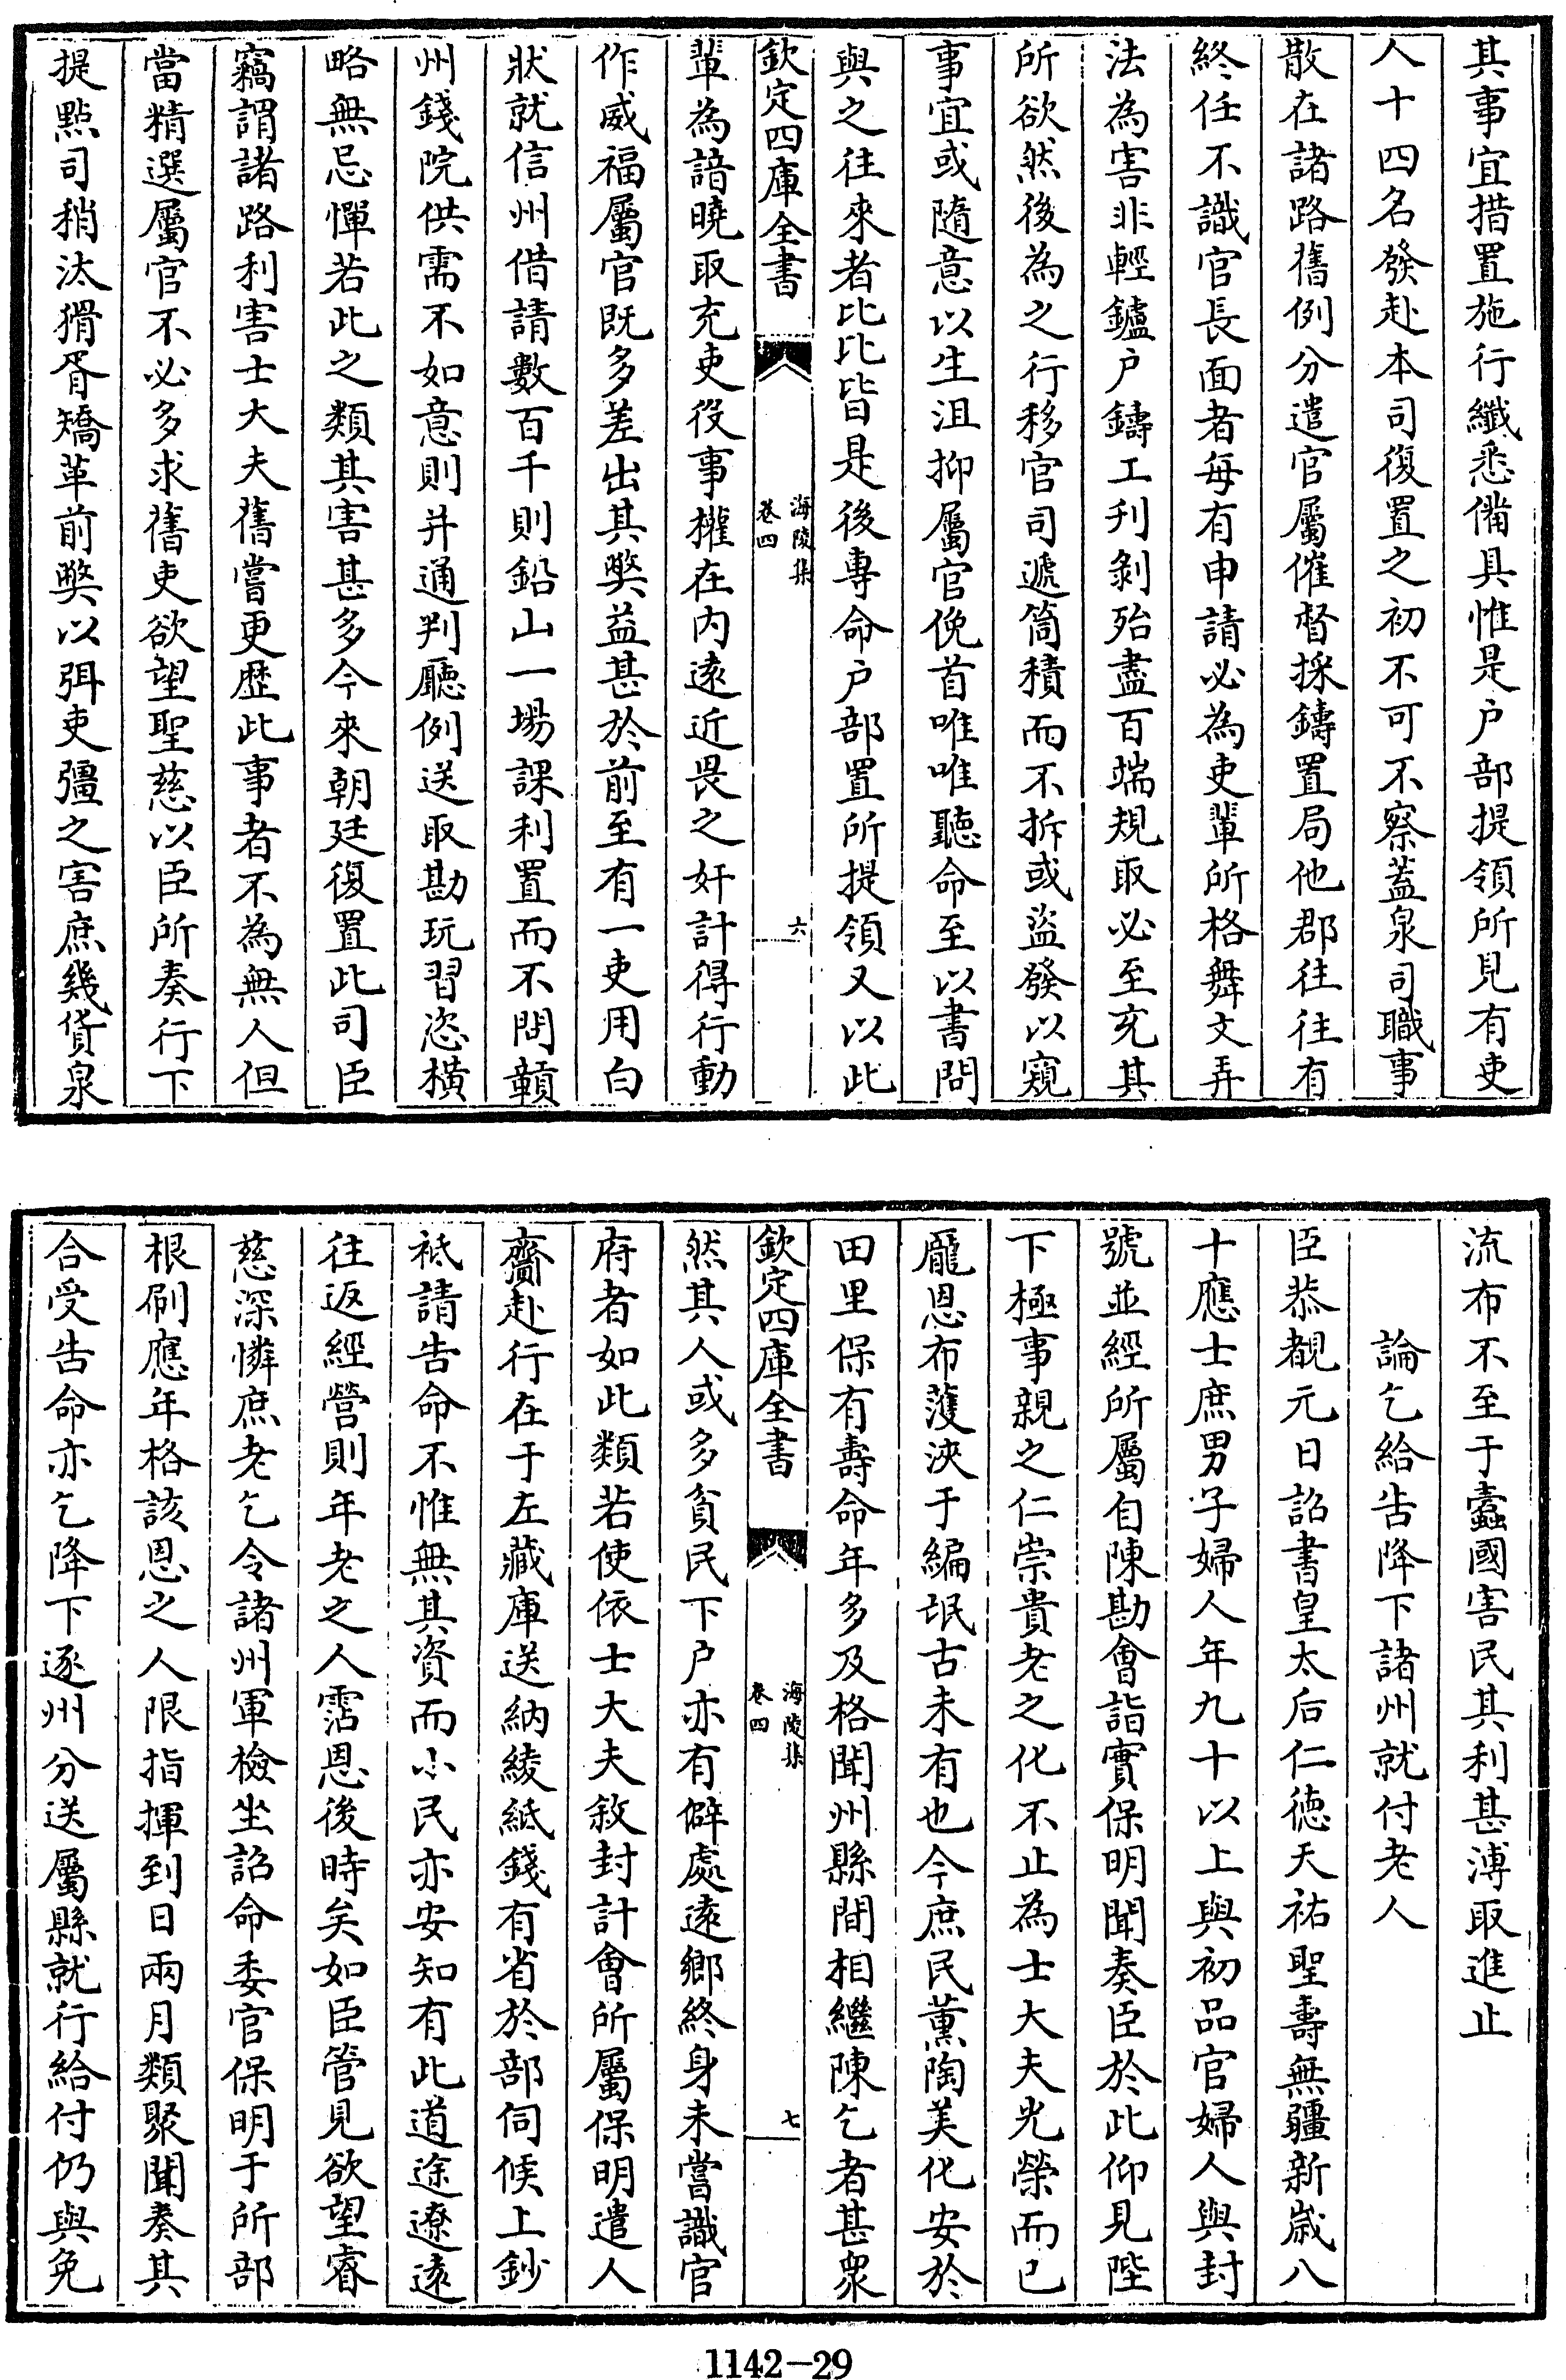 其事宜措置施行纖悉備具惟是户部提領所見有吏
人十四名發赴本司復置之初不可不察蓋泉司職事
散在諸路舊例分遣官屬催督採鑄置局他郡往往有
終任不識官長面者每有申請必為吏輩所格舞文弄
法為害非輕鑪户鑄工刋剝殆盡百端規取必至充其
所欲然後為之行移官司遞筒積而不拆或盜發以窺
事宜或隨意以生沮抑屬官俛首唯唯聽命至以書問
與之往來者比比皆是後專命户部置所提領又以此
欽定四庫全書
海陵集
卷四
六
輩為諳曉取充吏役事權在内遠近畏之奸計得行動
作威福屬官既多差出其弊益甚於前至有一吏用白
狀就信州借請數百千則鉛山一場課利置而不問贑
州錢院供需不如意則并通判廳例送取勘玩習恣橫
略無忌憚若此之類其害甚多今來朝廷復置此司臣
竊謂諸路利害士大夫舊嘗更歴此事者不為無人但
當精選屬官不必多求舊吏欲望聖慈以臣所奏行下
提點司稍汰猾胥矯革前弊以弭吏彊之害庶幾貨泉
流布不至于蠧國害民其利甚溥取進止
論乞給告降下諸州就付老人
臣恭覩元日詔書皇太后仁徳天祐聖壽無疆新歲八
十應士庶男子婦人年九十以上與初品官婦人與封
號並經所屬自陳勘會詣實保明聞奏臣於此仰見陛
下極事親之仁崇貴老之化不止為士大夫光榮而已
龎恩布濩浹于編氓古未有也今庶民薰陶美化安於
田里保有壽命年多及格聞州縣間相繼陳乞者甚衆
欽定四庫全書
海陵集
卷四
七
然其人或多貧民下户亦有僻處遠鄉終身未嘗識官
府者如此類若使依士大夫敘封計會所屬保明遣人
齎赴行在于左藏庫送納綾紙錢有省於部伺候上鈔
祗請告命不惟無其資而小民亦安知有此道途遼遠
往返經營則年老之人霑恩後時矣如臣管見欲望睿
慈深憐庶老乞令諸州軍檢坐詔命委官保明于所部
根刷應年格該恩之人限指揮到日兩月類聚聞奏其
合受告命亦乞降下逐州分送屬縣就行給付仍與免
1142-29